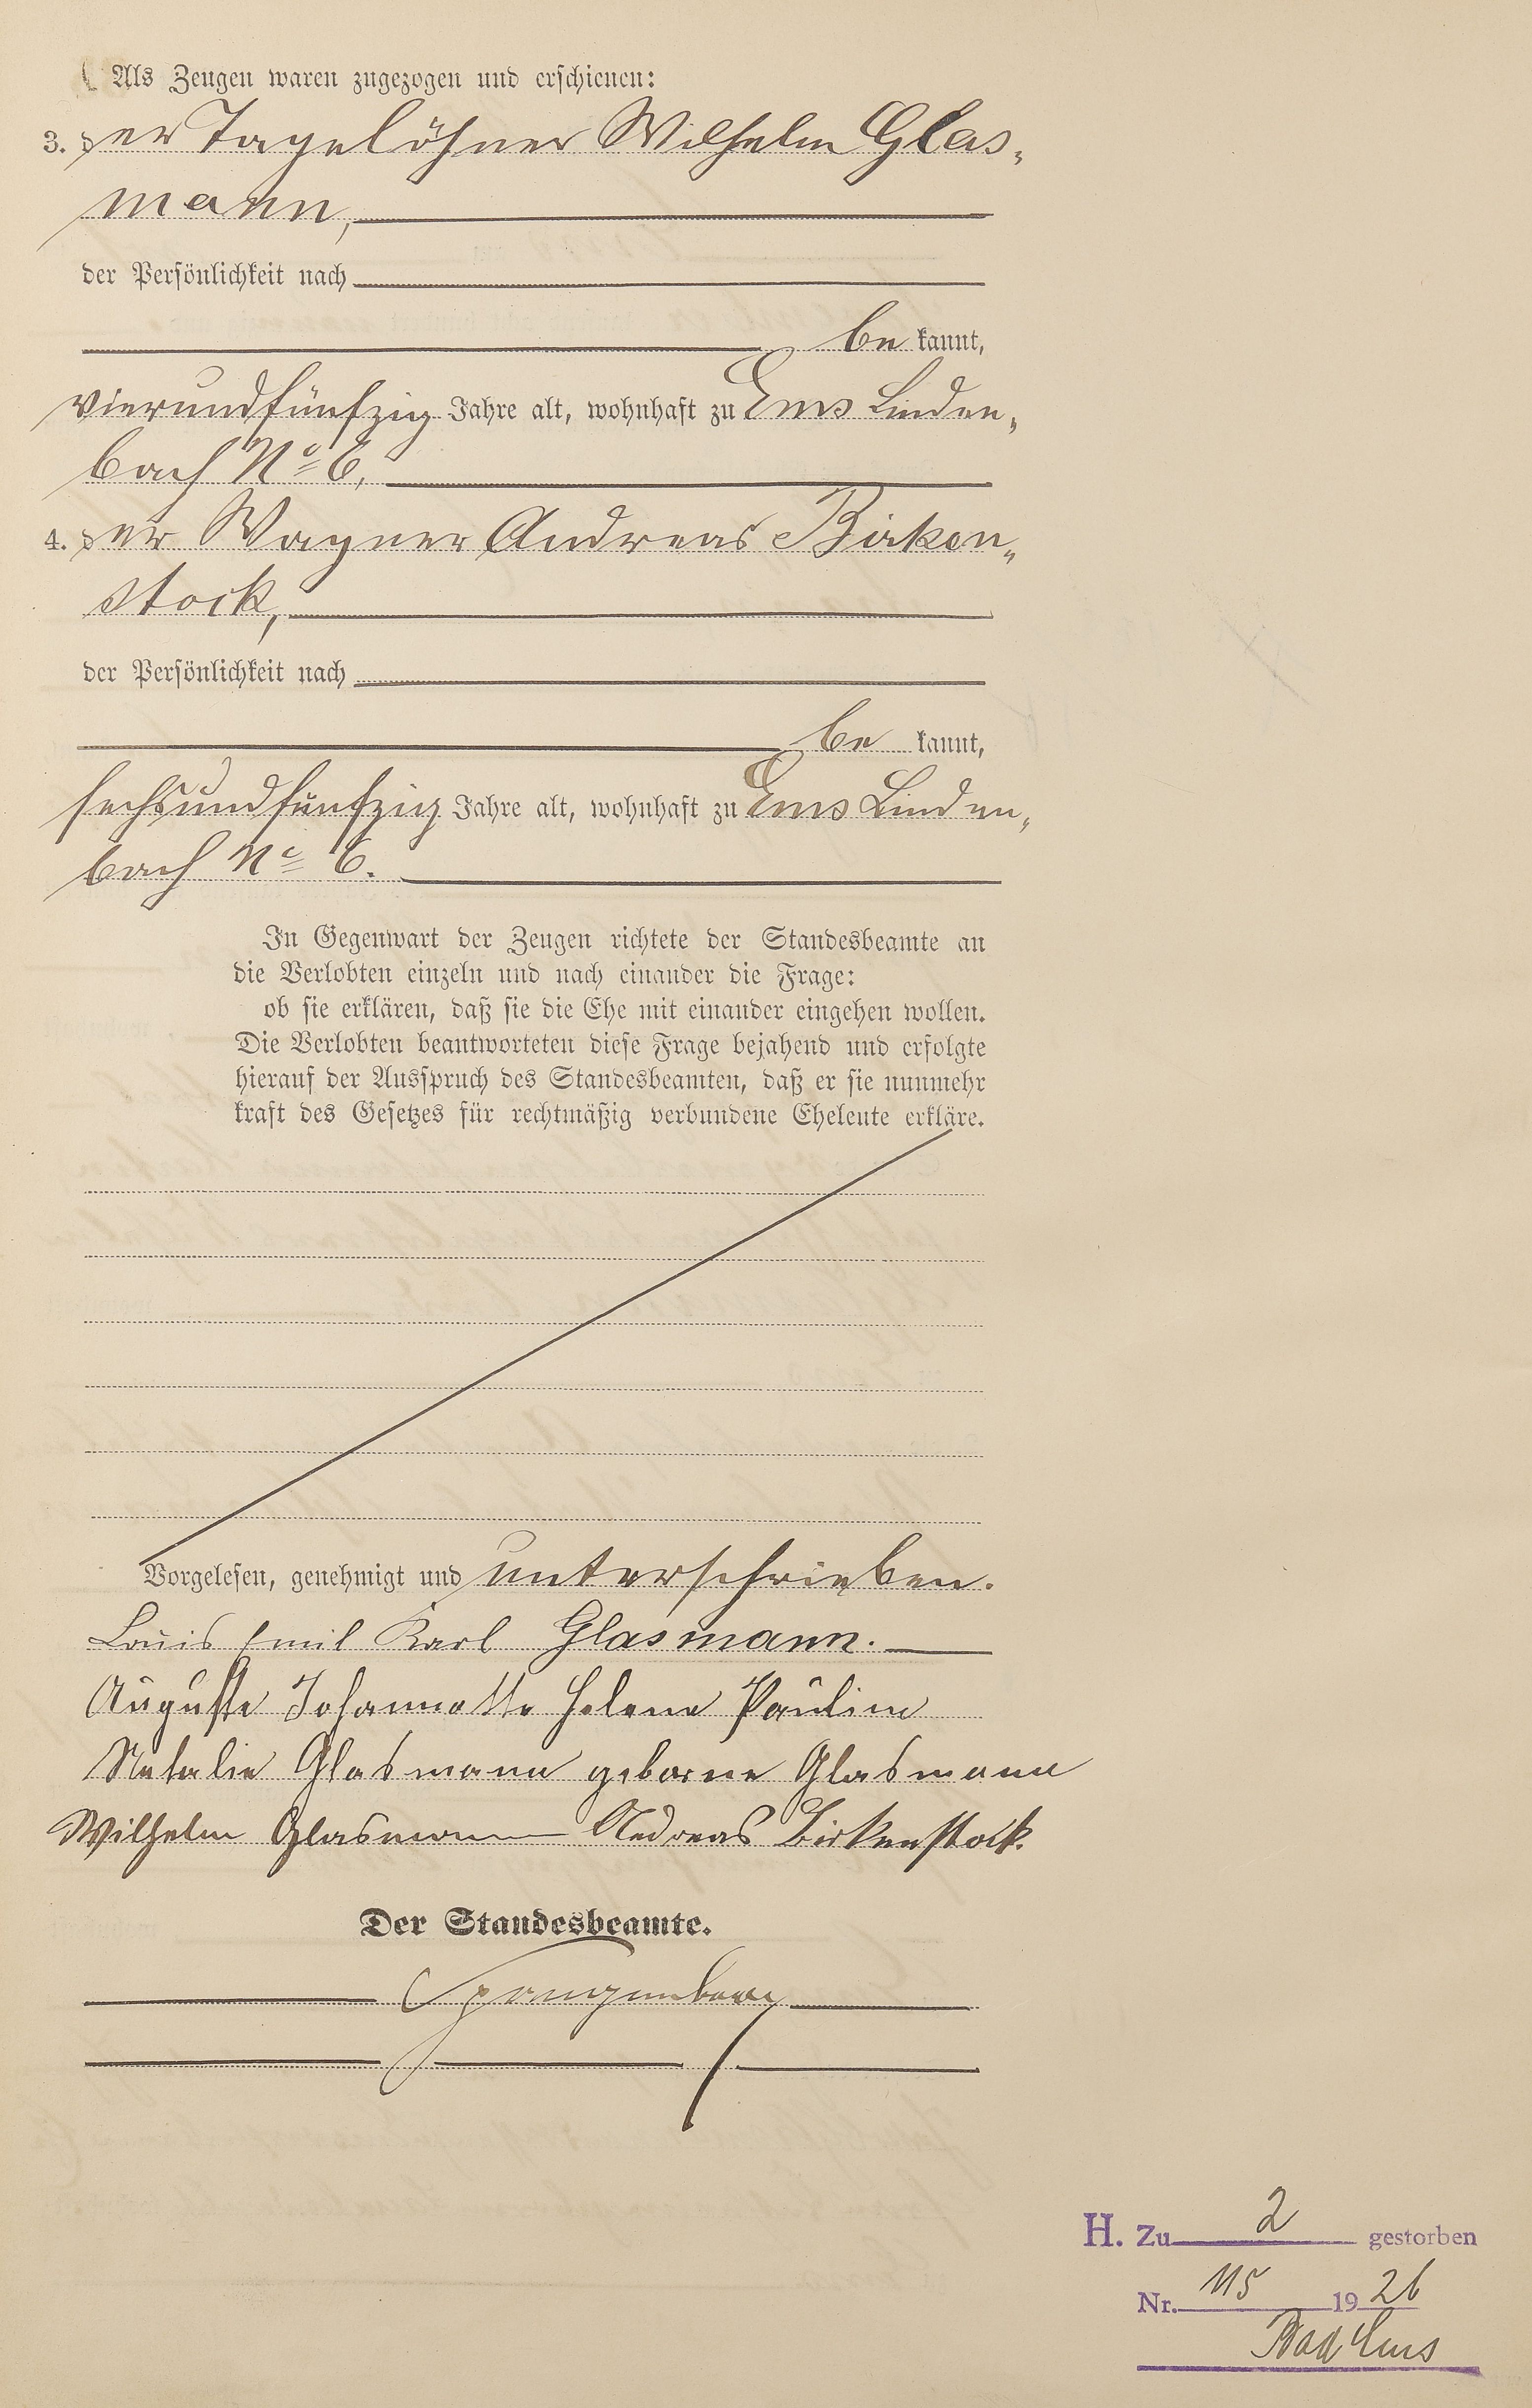 Als Zeugen waren zugezogen und erschienen:
3. der Tagelöhner Wilhelm Glas-
mann,
der Persönlichkeit nach
be kannt,
vierundfünfzig Jahre alt, wohnhaft zu Ems Linden-
bach No 6,
4. der Wagner Andreas Birken-
stock,
der Persönlichkeit nach
be kannt,
sechsundfünfzig Jahre alt, wohnhaft zu Ems Linden-
bach No 6.
In Gegenwart der Zeugen richtete der Standesbeamte an
die Verlobten einzeln und nach einander die Frage:
ob sie erklären, daß sie die Ehe mit einander eingehen wollen.
Die Verlobten beantworteten diese Frage bejahend und erfolgte
hierauf der Ausspruch des Standesbeamten, daß er sie nunmehr
kraft des Gesetzes für rechtmäßig verbundene Eheleute erkläre.
Vorgelesen, genehmigt und unterschrieben.
Louis Emil Karl Glasmann.
Auguste Johannette Helene Pauline
Natalie Glasmann geborne Glasmann
Wilhelm Glasmann Andreas Birkenstock.
Der Standesbeamte.
Spangenberg
H. Zu 2 gestorben
Nr. 115 1926
Bad Ems